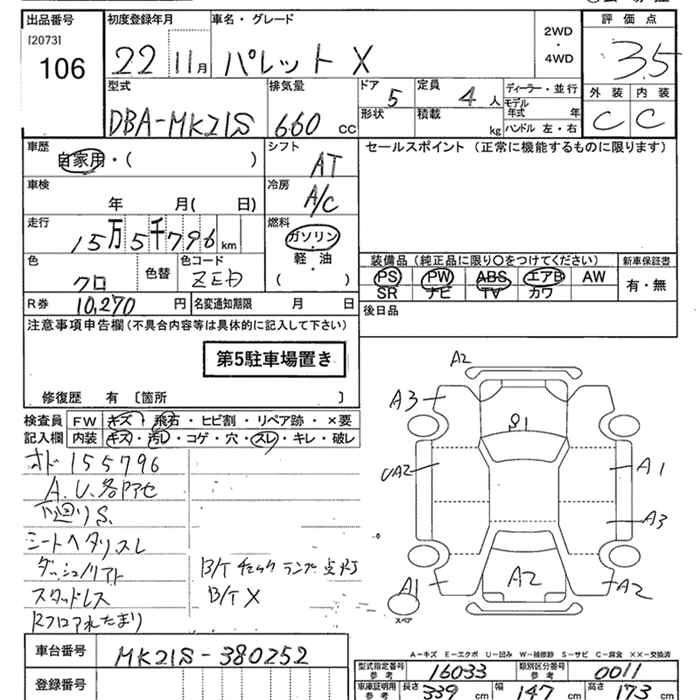 出品番号
[2073]
106
初度登録年月
22 11月
車名・グレード
パレット X
2WD
・
4WD
評価点
3.5
外装 内装
C C
型式
DBA-MK21S
排気量
660 cc
ドア
5
形状
定員
4 人
積載
kg
ディーラー・並行
モデル年式 年
ハンドル 左・右
車歴
自家用・( )
シフト
AT
セールスポイント (正常に機能するものに限ります)
車検
年 月( 日)
冷房
A/C
走行
15万5千796 km
燃料
ガソリン
・
軽・油
・
( )
色
クロ
色替
色コード
ZED
装備品 (純正品に限り〇をつけてください)
PS PW ABS エアB AW
SR ナビ TV カワ
新車保証書
有・無
R券
10,270 円
名変通知期限 月 日
後日品
注意事項申告欄 (不具合内容等は具体的に記入して下さい)
第5駐車場置き
修復歴 有〔箇所 〕
検査員記入欄
FW キズ・飛石・ヒビ割・リペア跡・×要
内装 キズ・汚レ・コゲ・穴・スレ・キレ・破レ
オド155796
A.U.各アセ
下廻りS.
シートヘタリスレ
ダッシュノリアト
スタッドレス
B/Tチェックランプ点灯
B/T X
A2
A3
S1
UA2
A1
A3
A1
A2
A2
スペア
A-キズ E-エクボ U-凹み W-補修跡 S-サビ C-腐食 XX-交換済
車台番号
MK21S-380252
登録番号
型式指定番号 参考
16033
類別区分番号 参考
0011
車庫証明用 参考
長さ 339 cm
幅 147 cm
高さ 173 cm